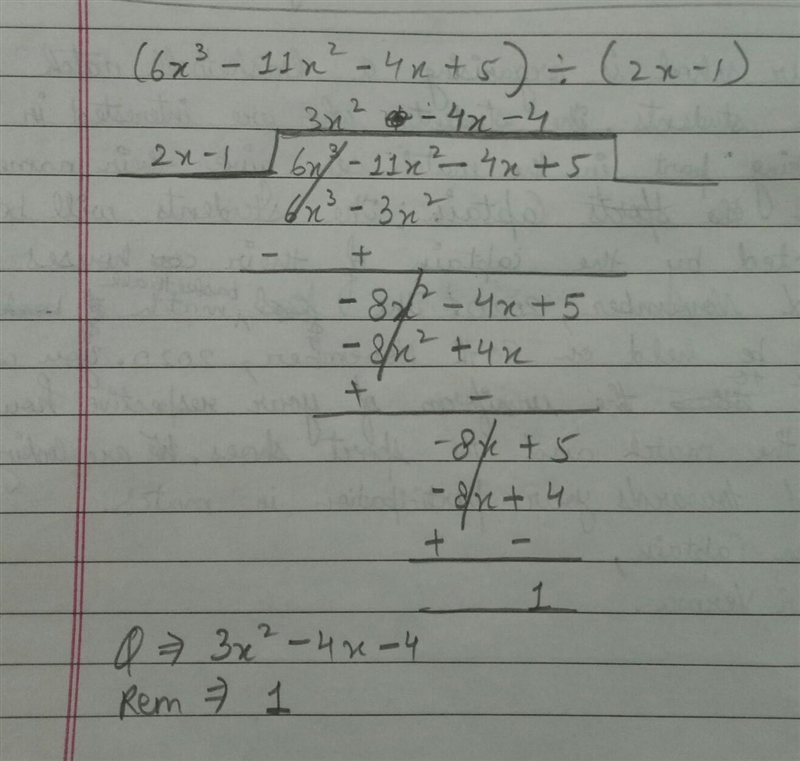 (6x³ - 11x² - 4x + 5) ÷ (2x - 1)
3x² - 4x - 4
2x - 1 6x³ - 11x² - 4x + 5
6x³ - 3x²
- +
- 8x² - 4x + 5
- 8x² + 4x
+ -
- 8x + 5
- 8x + 4
+ -
1
Q ⇒ 3x² - 4x - 4
Rem ⇒ 1